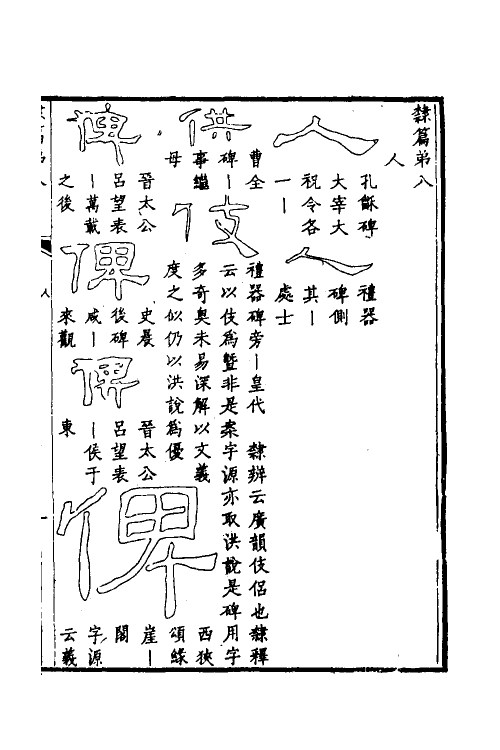 隸篇弟八
人
人
孔龢碑
大宰大
祝令各
一｜
人
禮器
碑側
其｜
處士
供
曹全
碑｜
事繼
母
伎
禮器碑旁｜皇代　隸辨云廣韻伎侶也隸釋
云以伎為暨非是案字源亦取洪說是碑用字
多奇奧未易深解以文義
度之似仍以洪說為優
俾
晉太公
呂望表
｜萬載
之後
俾
史晨
後碑
咸｜
來觀
俾
晉太公
呂望表
｜侯于
東
俾
西狹
頌緣
崖｜
閣
字源
云義
人